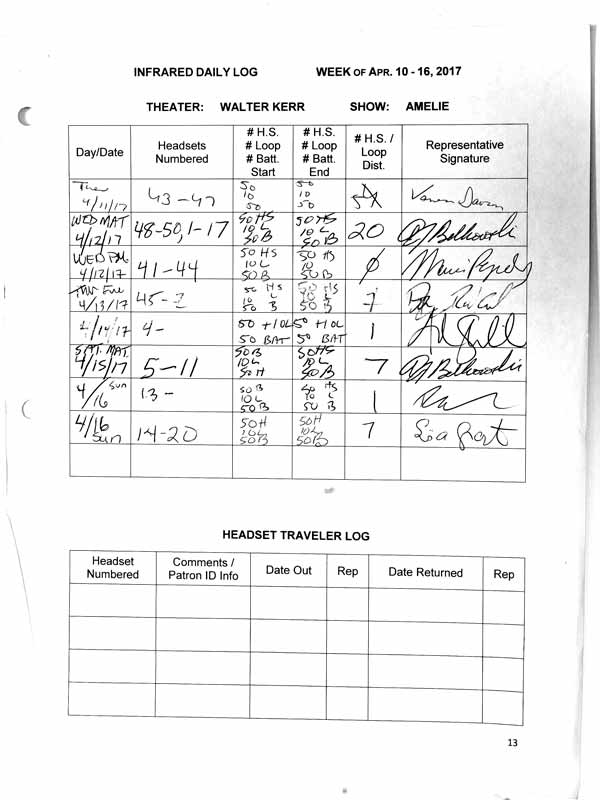 INFRARED DAILY LOG WEEK OF APR. 10 - 16, 2017
THEATER: WALTER KERR SHOW: AMELIE
Day/Date
Headsets
Numbered
# H.S.
# Loop
# Batt.
Start
# H.S.
# Loop
# Batt.
End
# H.S. /
Loop
Dist.
Representative
Signature
4/11/17
43-47
50
10
50
50
10
50
WED MAT
4/12/17
48-50, 1-17
50 HS
10 L
50 B
50 HS
10 L
50 B
20
WED PM
4/12/17
41-44
50 HS
10 L
50 B
50 HS
10
50 B
4/13/17
50 HS
L
50 B
50 HS
L
50 B
/14/17
4-
50 + 10L
50 BAT
50 + 10L
50 BAT
1
SAT. MAT.
4/15/17
5-11
50 B
10 L
50 H
50 HS
10 L
50 B
7
4/16 Sun
13-
50 B
10 L
50 B
50 HS
10 L
50 B
1
4/16
Sun
14-20
50H
10L
50B
50H
10L
50B
7
HEADSET TRAVELER LOG
Headset
Numbered
Comments /
Patron ID Info
Date Out
Rep
Date Returned
Rep
13